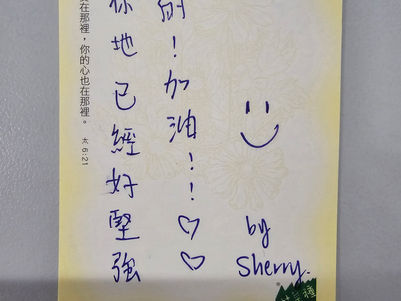 在那裡，你的心也在那裡。 太 6:21
你地已經好堅強
的！加油！！♡♡
by
Sherry.